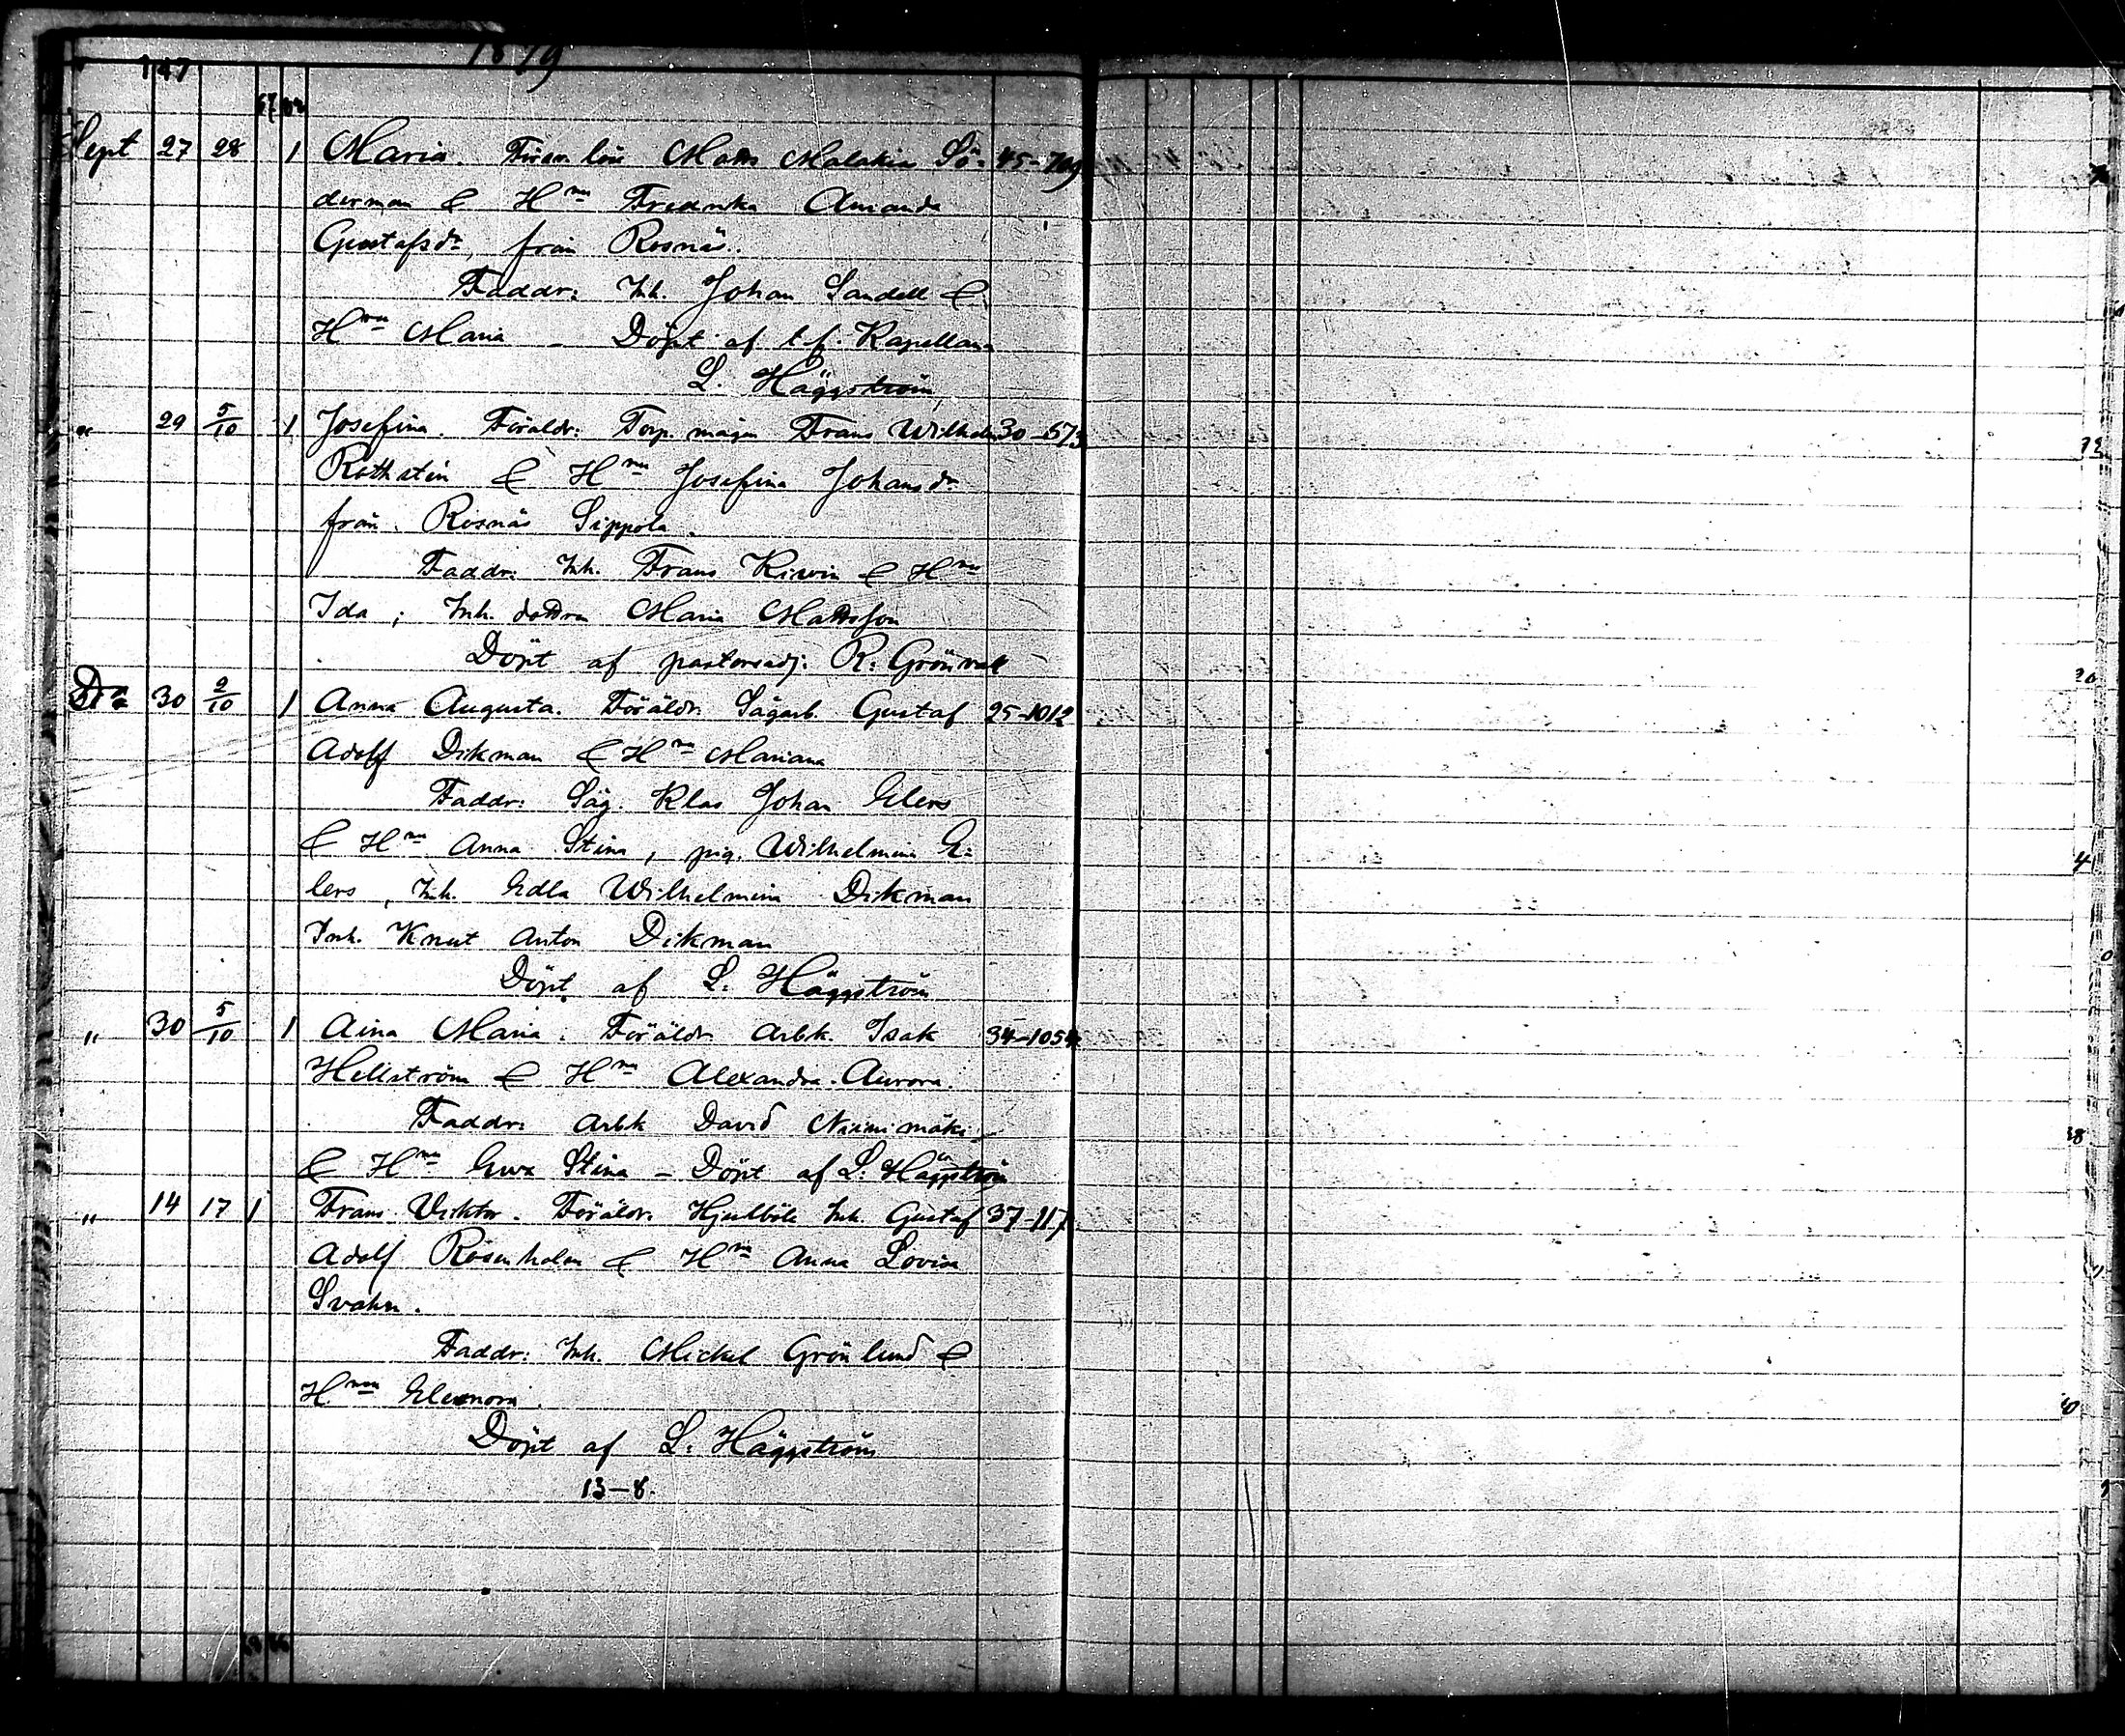 1879
147
Sept 27 28 1 Maria. Matts Malakias Sö- 45-709
derman & Hnu Fredrika Amanda
Gustafsdr, från Rosnäs.
Faddr: Inh. Johan Sandell &
Hnu Maria - Döpt af t.f. Kapellanen
L. Häggström
" 29 5/10 1 Josefina. Föräldr: Torp. mågen Frans Wilhelm 30-573
Rothstén & Hnu Josefina Johansdr
från Rosnäs Sippola.
Faddr: Inh. Frans Kiwin & Hnu
Ida; Inh. dottren Maria Mattsson
Döpt af pastorsadj. R. Grönvall
Da 30 2/10 1 Anna Augusta. Föräldr. Sågarb. Gustaf 25-1012
Adolf Dikman & Hnu Mariana
Faddr: Såg. Klas Johan Elers
& Hnu Anna Stina, pig. Wilhelmina E-
lers, Inh. Edla Wilhelmina Dikman
Inh. Knut Anton Dikman
Döpt af L. Häggström
" 30 5/10 1 Aina Maria. Föräldr Arbk. Isak 34-1054
Hellström & Hnu Alexandra Aurora.
Faddr: Arbk David Niinimäki
& Hnu Ewa Stina - Döpt af L. Häggström
" 14 17 1 Frans Viktor. Föräldr. Hjulböle Inh. Gustaf 37-117
Adolf Rosenholm & Hnu Anna Lovisa
Svahn.
Faddr: Inh. Mickel Grönlund &
Hnu Eleonora.
Döpt af L. Häggström
13-8.